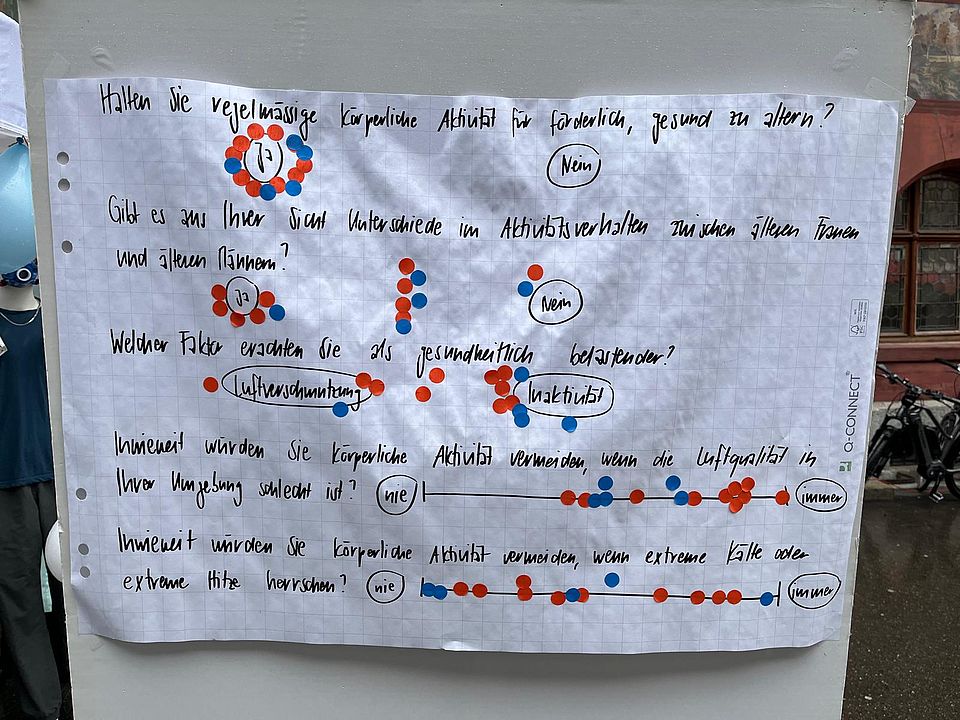 Halten Sie regelmässige körperliche Aktivität für förderlich, gesund zu altern?
Ja Nein
Gibt es aus Ihrer Sicht Unterschiede im Aktivitätsverhalten zwischen älteren Frauen
und älteren Männern?
Ja Nein
Welcher Faktor erachten Sie als gesundheitlich belastender?
Luftverschmutzung Inaktivität
Inwieweit würden Sie körperliche Aktivität vermeiden, wenn die Luftqualität in
Ihrer Umgebung schlecht ist? nie immer
Inwieweit würden Sie körperliche Aktivität vermeiden, wenn extreme Kälte oder
extreme Hitze herrschen? nie immer
O-CONNECT